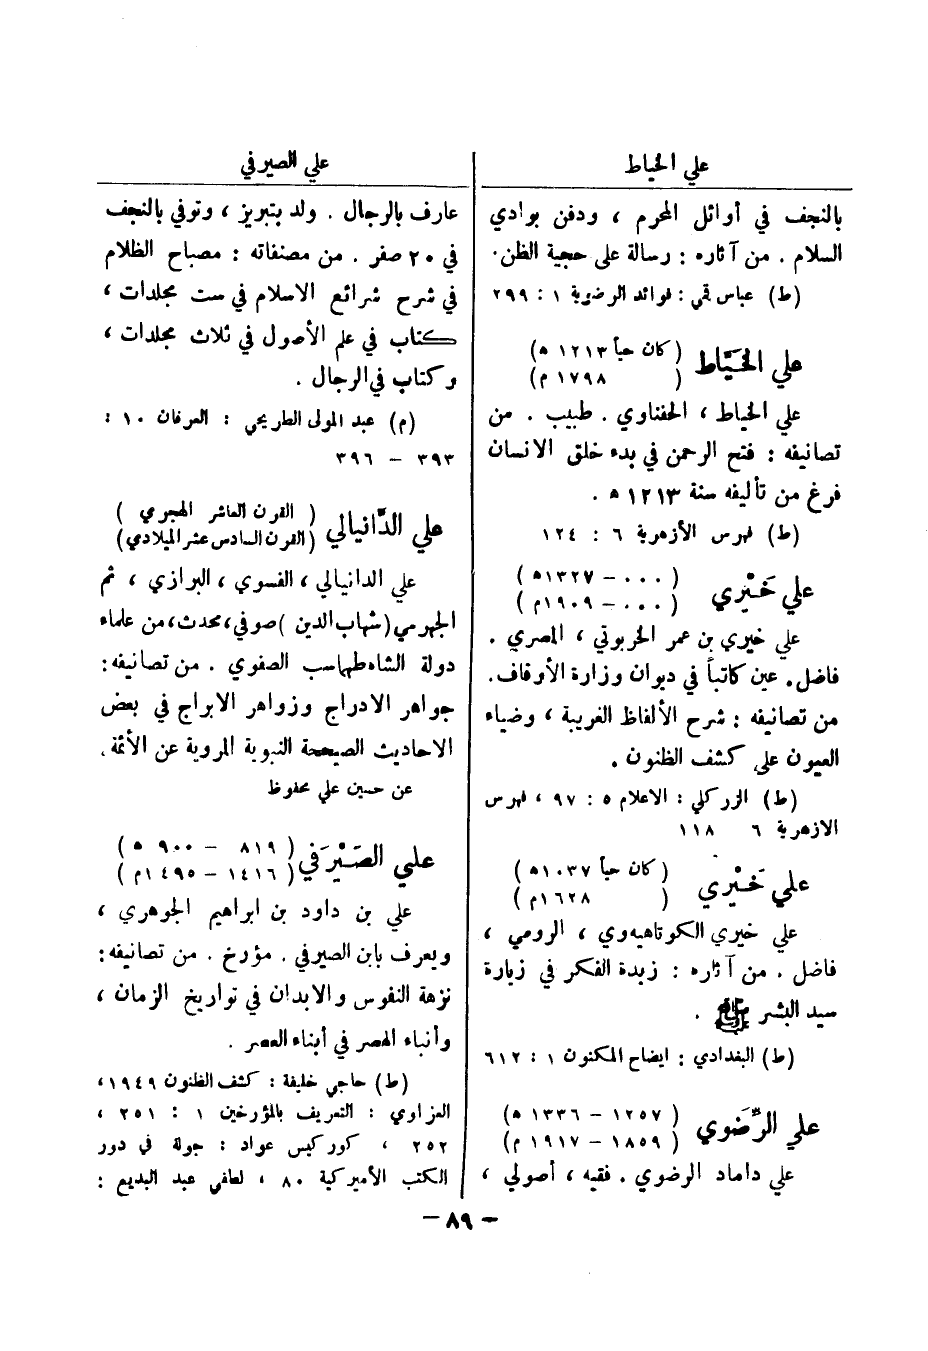 علي الخياط
بالنجف في أوائل المحرم ، ودفن بوادي
السلام . من آثاره : رسالة على حجية الظن .
(ط) عباس قمي : فوائد الرضوية ١ : ٢٩٩
علي الخيَّاط (كان حياً ١٢١٣ ه)
( ١٧٩٨ م)
علي الخياط ، الحفناوي . طبيب . من
تصانيفه : فتح الرحمن في بدء خلق الانسان
فرغ من تأليفه سنة ١٢١٣ ه .
(ط) فهرس الأزهرية ٦ : ١٢٤
علي خَيْري (٠٠٠ – ١٣٢٧ه)
(٠٠٠ – ١٩٠٩م)
علي خيري بن عمر الخربوتي ، المصري .
فاضل . عين كاتباً في ديوان وزارة الأوقاف .
من تصانيفه : شرح الألفاظ الغريبة ، وضياء
العيون على كشف الظنون .
(ط) الزركلي : الاعلام ٥ : ٩٧ ، فهرس
الازهرية ٦ ١١٨
علي خَيْري (كان حياً ١٠٣٧ه)
( ١٦٢٨م)
علي خيري الكوتاهيهوي ، الرومي ،
فاضل . من آثاره : زبدة الفكر في زيارة
سيد البشر ﷺ .
(ط) البغدادي : ايضاح المكنون ١ : ٦١٢
علي الرَّضَوي (١٢٥٧ – ١٣٣٦ ه)
(١٨٥٩ – ١٩١٧ م)
علي داماد الرضوي . فقيه ، أصولي ،
علي الصيرفي
عارف بالرجال . ولد بتبريز ، وتوفي بالنجف
في ٢٠ صفر . من مصنفاته : مصباح الظلام
في شرح شرائع الاسلام في ست مجلدات ،
كتاب في علم الأصول في ثلاث مجلدات ،
وكتاب في الرجال .
(م) عبد المولى الطريحي : العرفان ١٠ :
٣٩٣ – ٣٩٦
علي الدَّانيالي ( القرن العاشر الهجري )
(القرن السادس عشر الميلادي)
علي الدانيالي ، الفسوي ، البرازي ، ثم
الجهرمي (شهاب الدين ) صوفي ، محدث ، من علماء
دولة الشاه طهماسب الصفوي . من تصانيفه :
جواهر الادراج وزواهر الابراج في بعض
الاحاديث الصحيحة النبوية المروية عن الأئمة .
عن حسين علي محفوظ
علي الصَّيْرَفي (٨١٩ – ٩٠٠ ه)
(١٤١٦ – ١٤٩٥م)
علي بن داود بن ابراهيم الجوهري ،
ويعرف بابن الصيرفي . مؤرخ . من تصانيفه :
نزهة النفوس والابدان في تواريخ الزمان ،
وأنباء الهصر في أبناء العصر .
(ط) حاجي خليفة : كشف الظنون ١٩٤٩ ،
العزاوي : التعريف بالمؤرخين ١ : ٢٥١ ،
٢٥٢ ، كوركيس عواد : جولة في دور
الكتب الأميركية ٨٠ ، لطفي عبد البديع :
– ٨٩ –